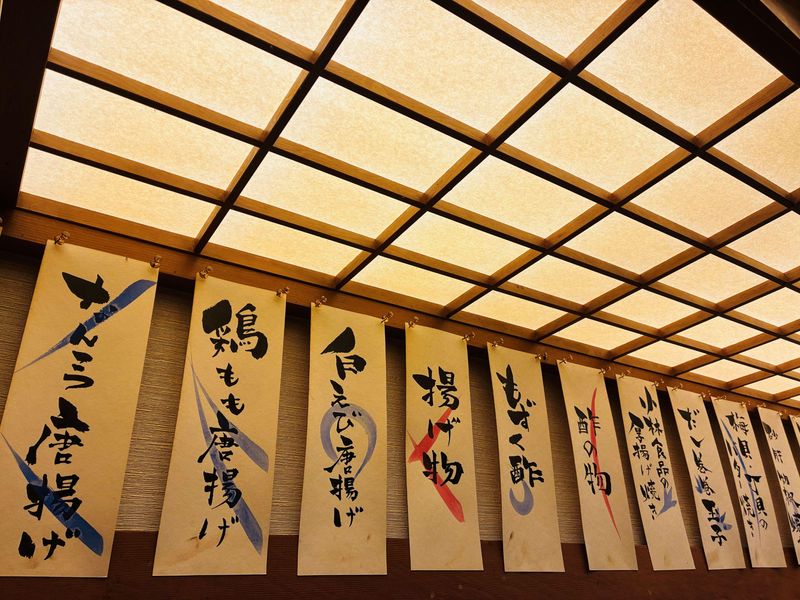 バター焼き
だし巻き玉子
小林食品の
厚揚げ焼き
酢の物
もずく酢
揚げ物
白えび唐揚げ
鶏もも唐揚げ
なんこつ唐揚げ